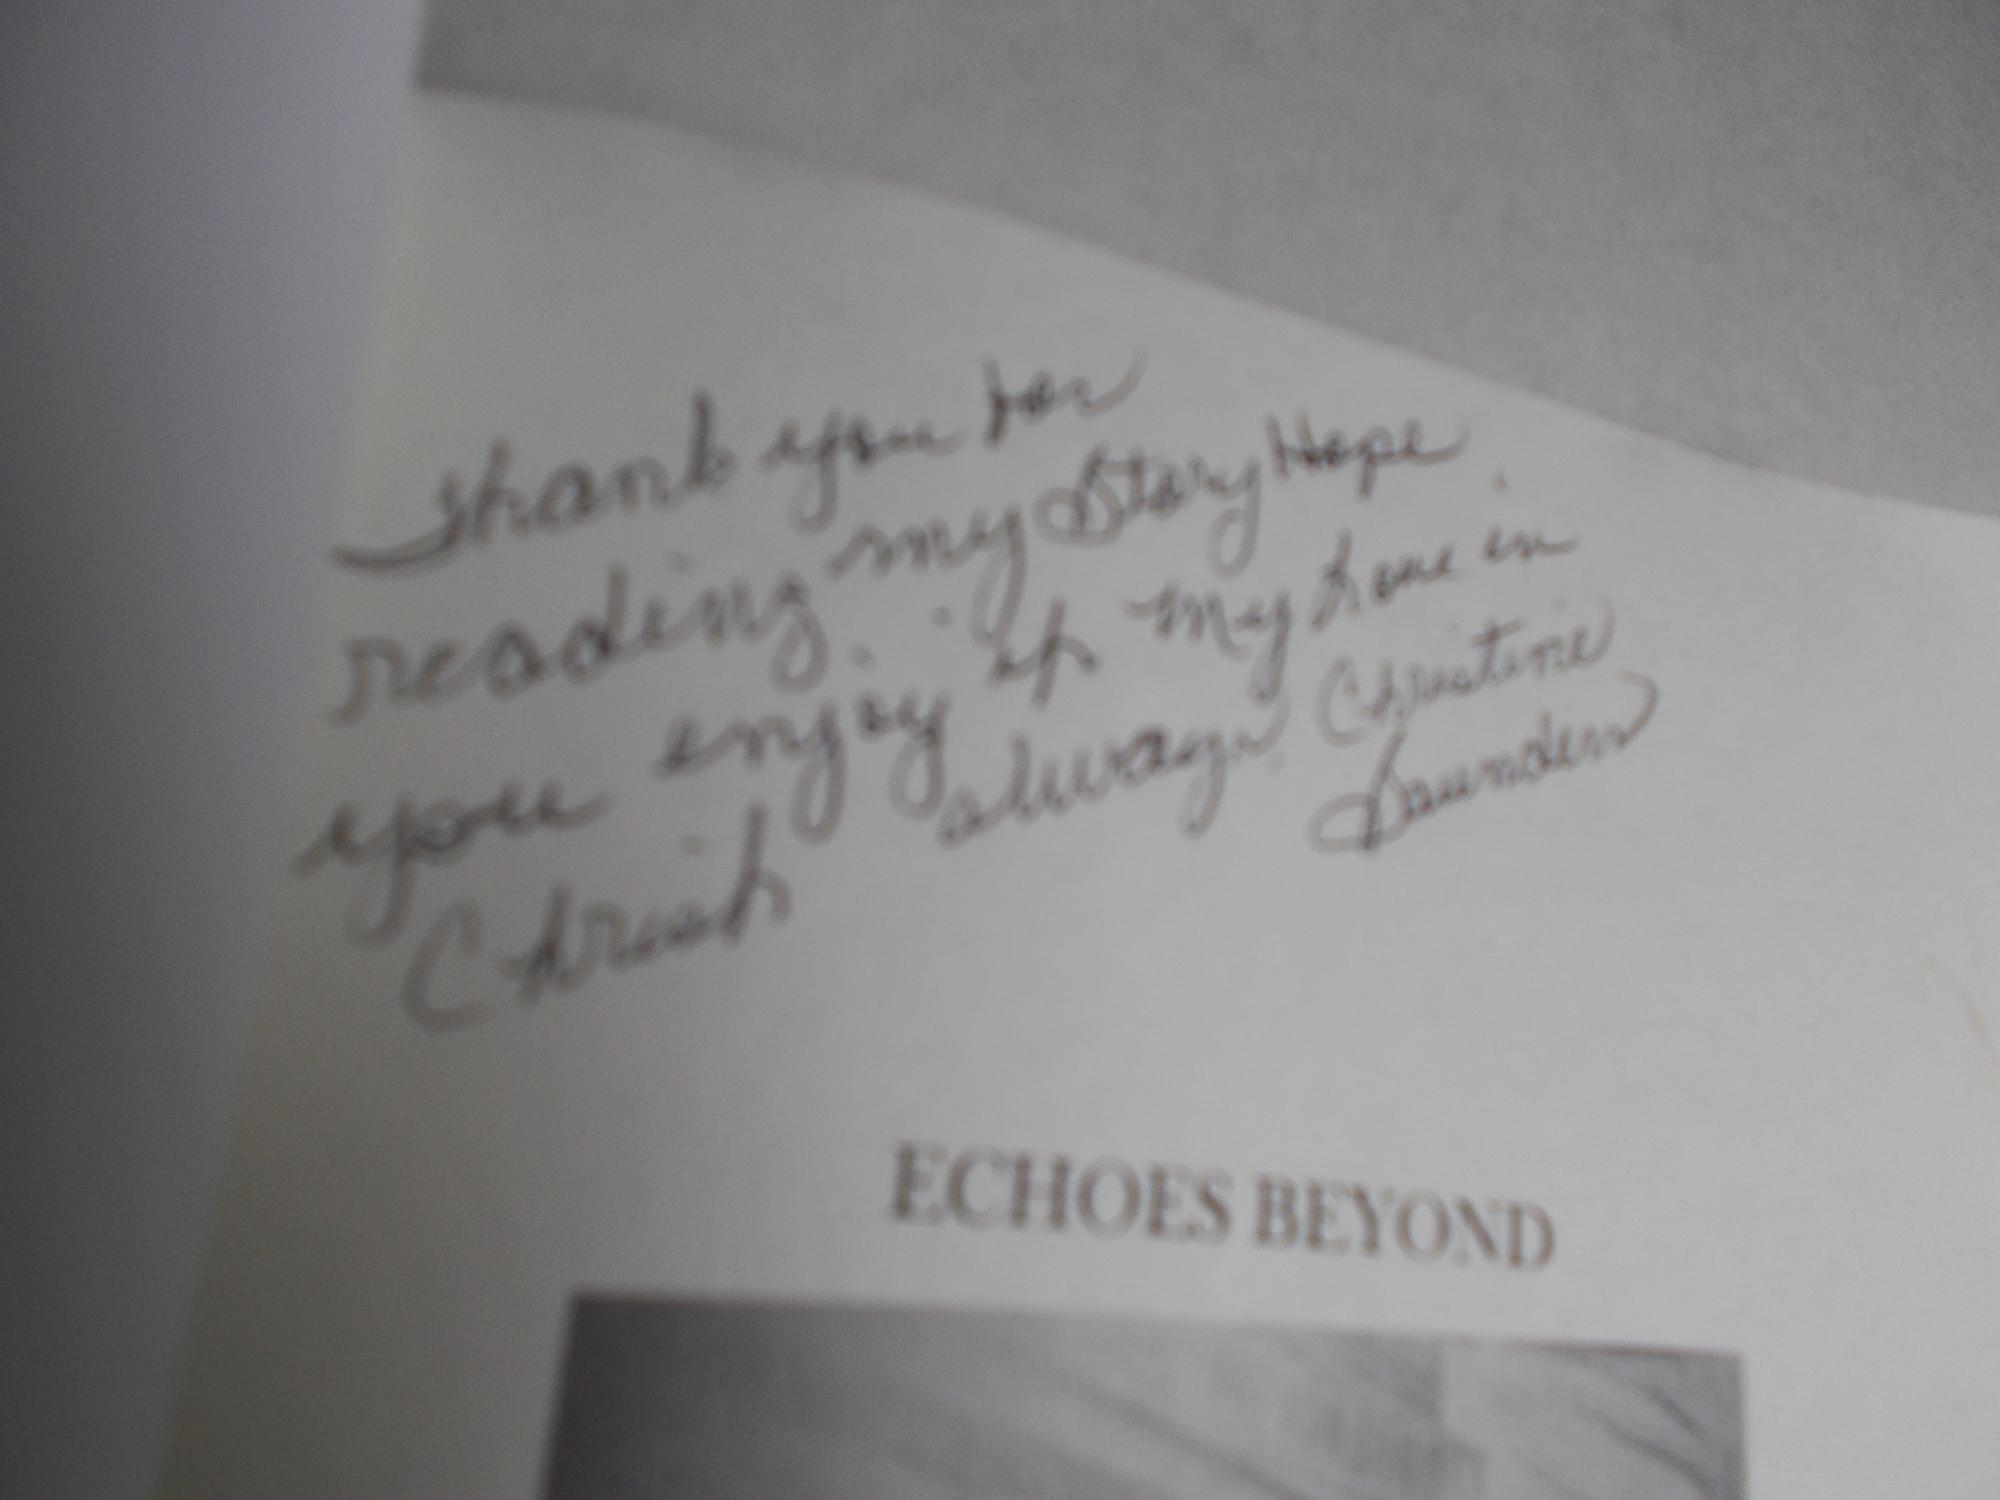 Thank you for
reading my Story Hope
you enjoy it. My Love in
Christ always. Christine
Saunders
ECHOES BEYOND